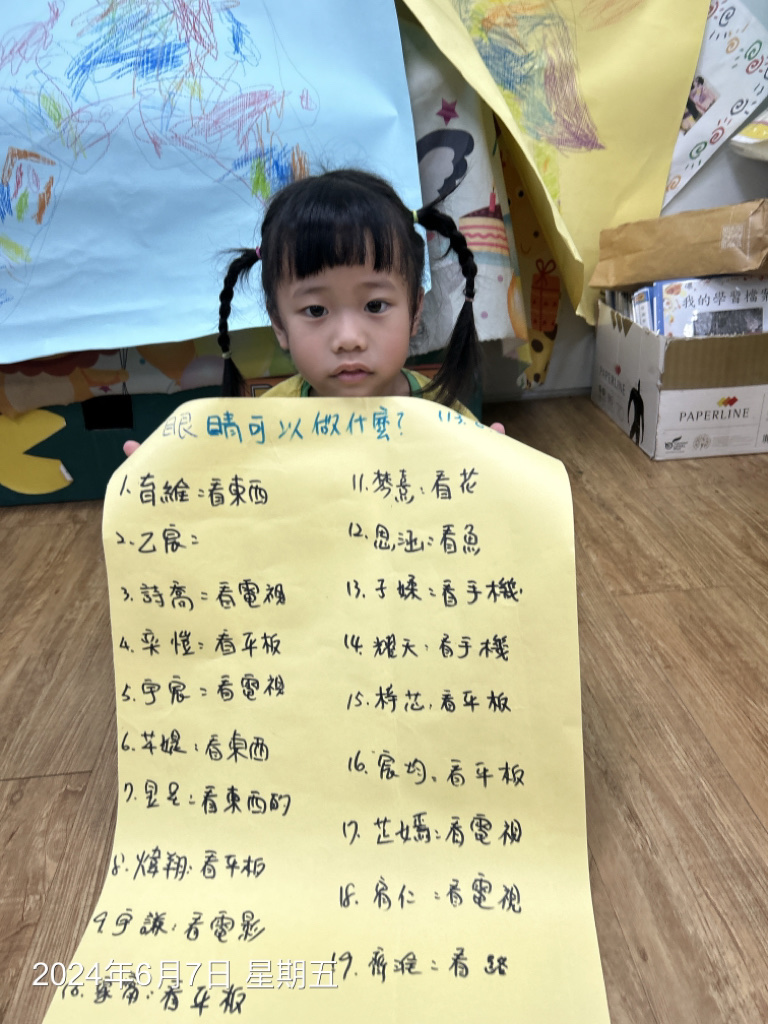 眼睛可以做什麼? 113.
1. 育維:看東西
2. 乙宸:
3. 詩喬:看電視
4. 奕愷:看平板
5. 宇宸:看電視
6. 苹媞:看東西
7. 昱名:看東西的
8. 煒翔:看平板
9. 宇謙:看電影
10. 看平板
11. 梦熹:看花
12. 恩涵:看魚
13. 子媃:看手機
14. 耀天:看手機
15. 梓芯,看平板
16. 宸均,看平板
17. 芷嫣:看電視
18. 宥仁:看電視
19. 看路
2024年6月7日 星期五
我的學習檔案
PAPERLINE